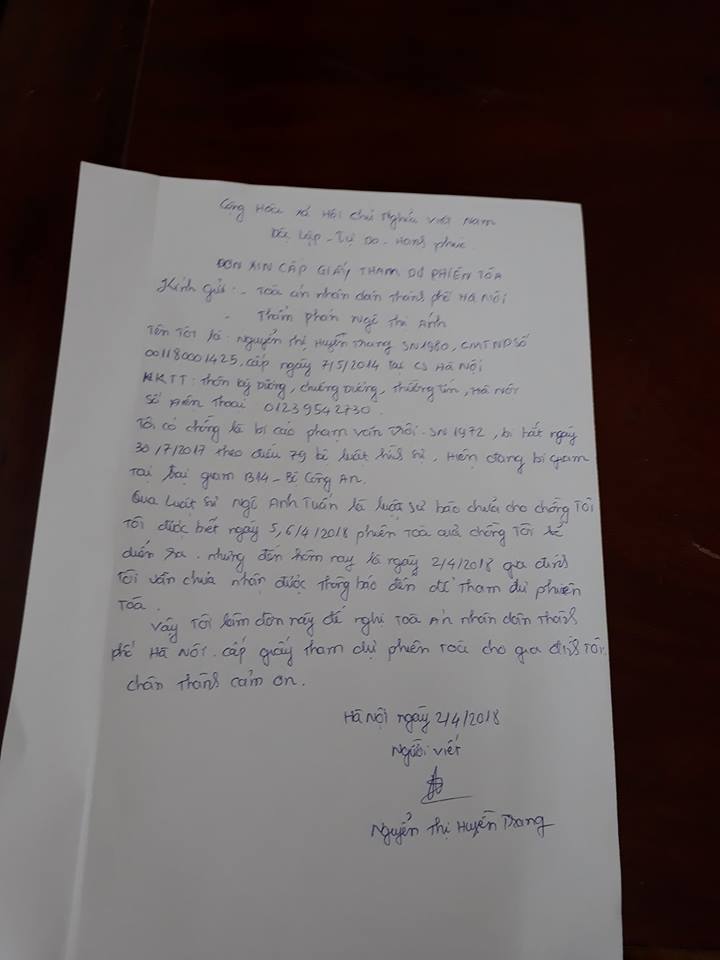 Cộng Hòa xã Hội chủ Nghĩa Việt Nam
Độc Lập - Tự Do - Hạnh phúc
ĐƠN XIN CẤP GIẤY THAM DỰ PHIÊN TÒA
Kính gửi: - Toà án nhân dân thành phố Hà Nội
- Thẩm phán Ngô Thị Ánh
Tên Tôi là: Nguyễn Thị Huyền Trang SN1980, CMTND Số
001180001425, cấp ngày 7/5/2014 Tại CS Hà Nội
HKTT: Thôn kỳ Dương, chương Dương, Thường Tín, Hà Nội
Số Điện Thoại 01239542730.
Tôi có chồng là bị cáo phạm văn Trội. SN 1972, bị bắt ngày
30/7/2017 theo điều 79 bộ luật hình sự, Hiện đang bị giam
Tại Trại giam B14 - Bộ Công An.
Qua Luật sư Ngô Anh Tuấn là luật sư bào chữa cho chồng Tôi
Tôi được biết ngày 5,6/4/2018 phiên Toà của chồng Tôi sẽ
diễn ra. nhưng đến hôm nay là ngày 2/4/2018 gia đình
Tôi vẫn chưa nhận được thông báo đến để Tham dự phiên
Tòa.
Vậy Tôi làm đơn này đề nghị Toà Án nhân dân Thành
phố Hà Nội. cấp giấy tham dự phiên Toà cho gia đình Tôi.
chân Thành cảm ơn.
Hà Nội ngày 2/4/2018
Người viết
Nguyễn Thị Huyền Trang